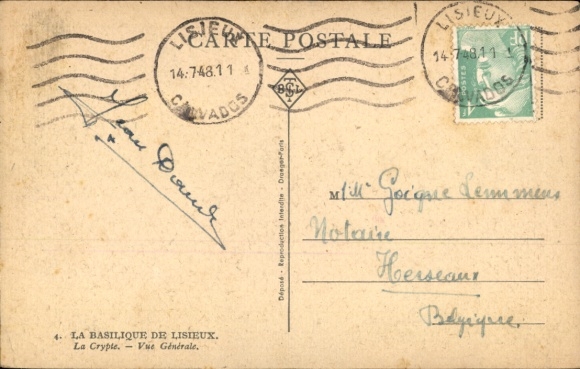 CARTE POSTALE
LISIEUX
14-7 48.11
CALVADOS
LISIEUX
14-7 48.11
CALVADOS
Jean
M
Lemmens
Notaire
Herseaux
Belgique
Déposé - Reproduction Interdite - Draeger-Paris
4. LA BASILIQUE DE LISIEUX.
La Crypte. — Vue Générale.